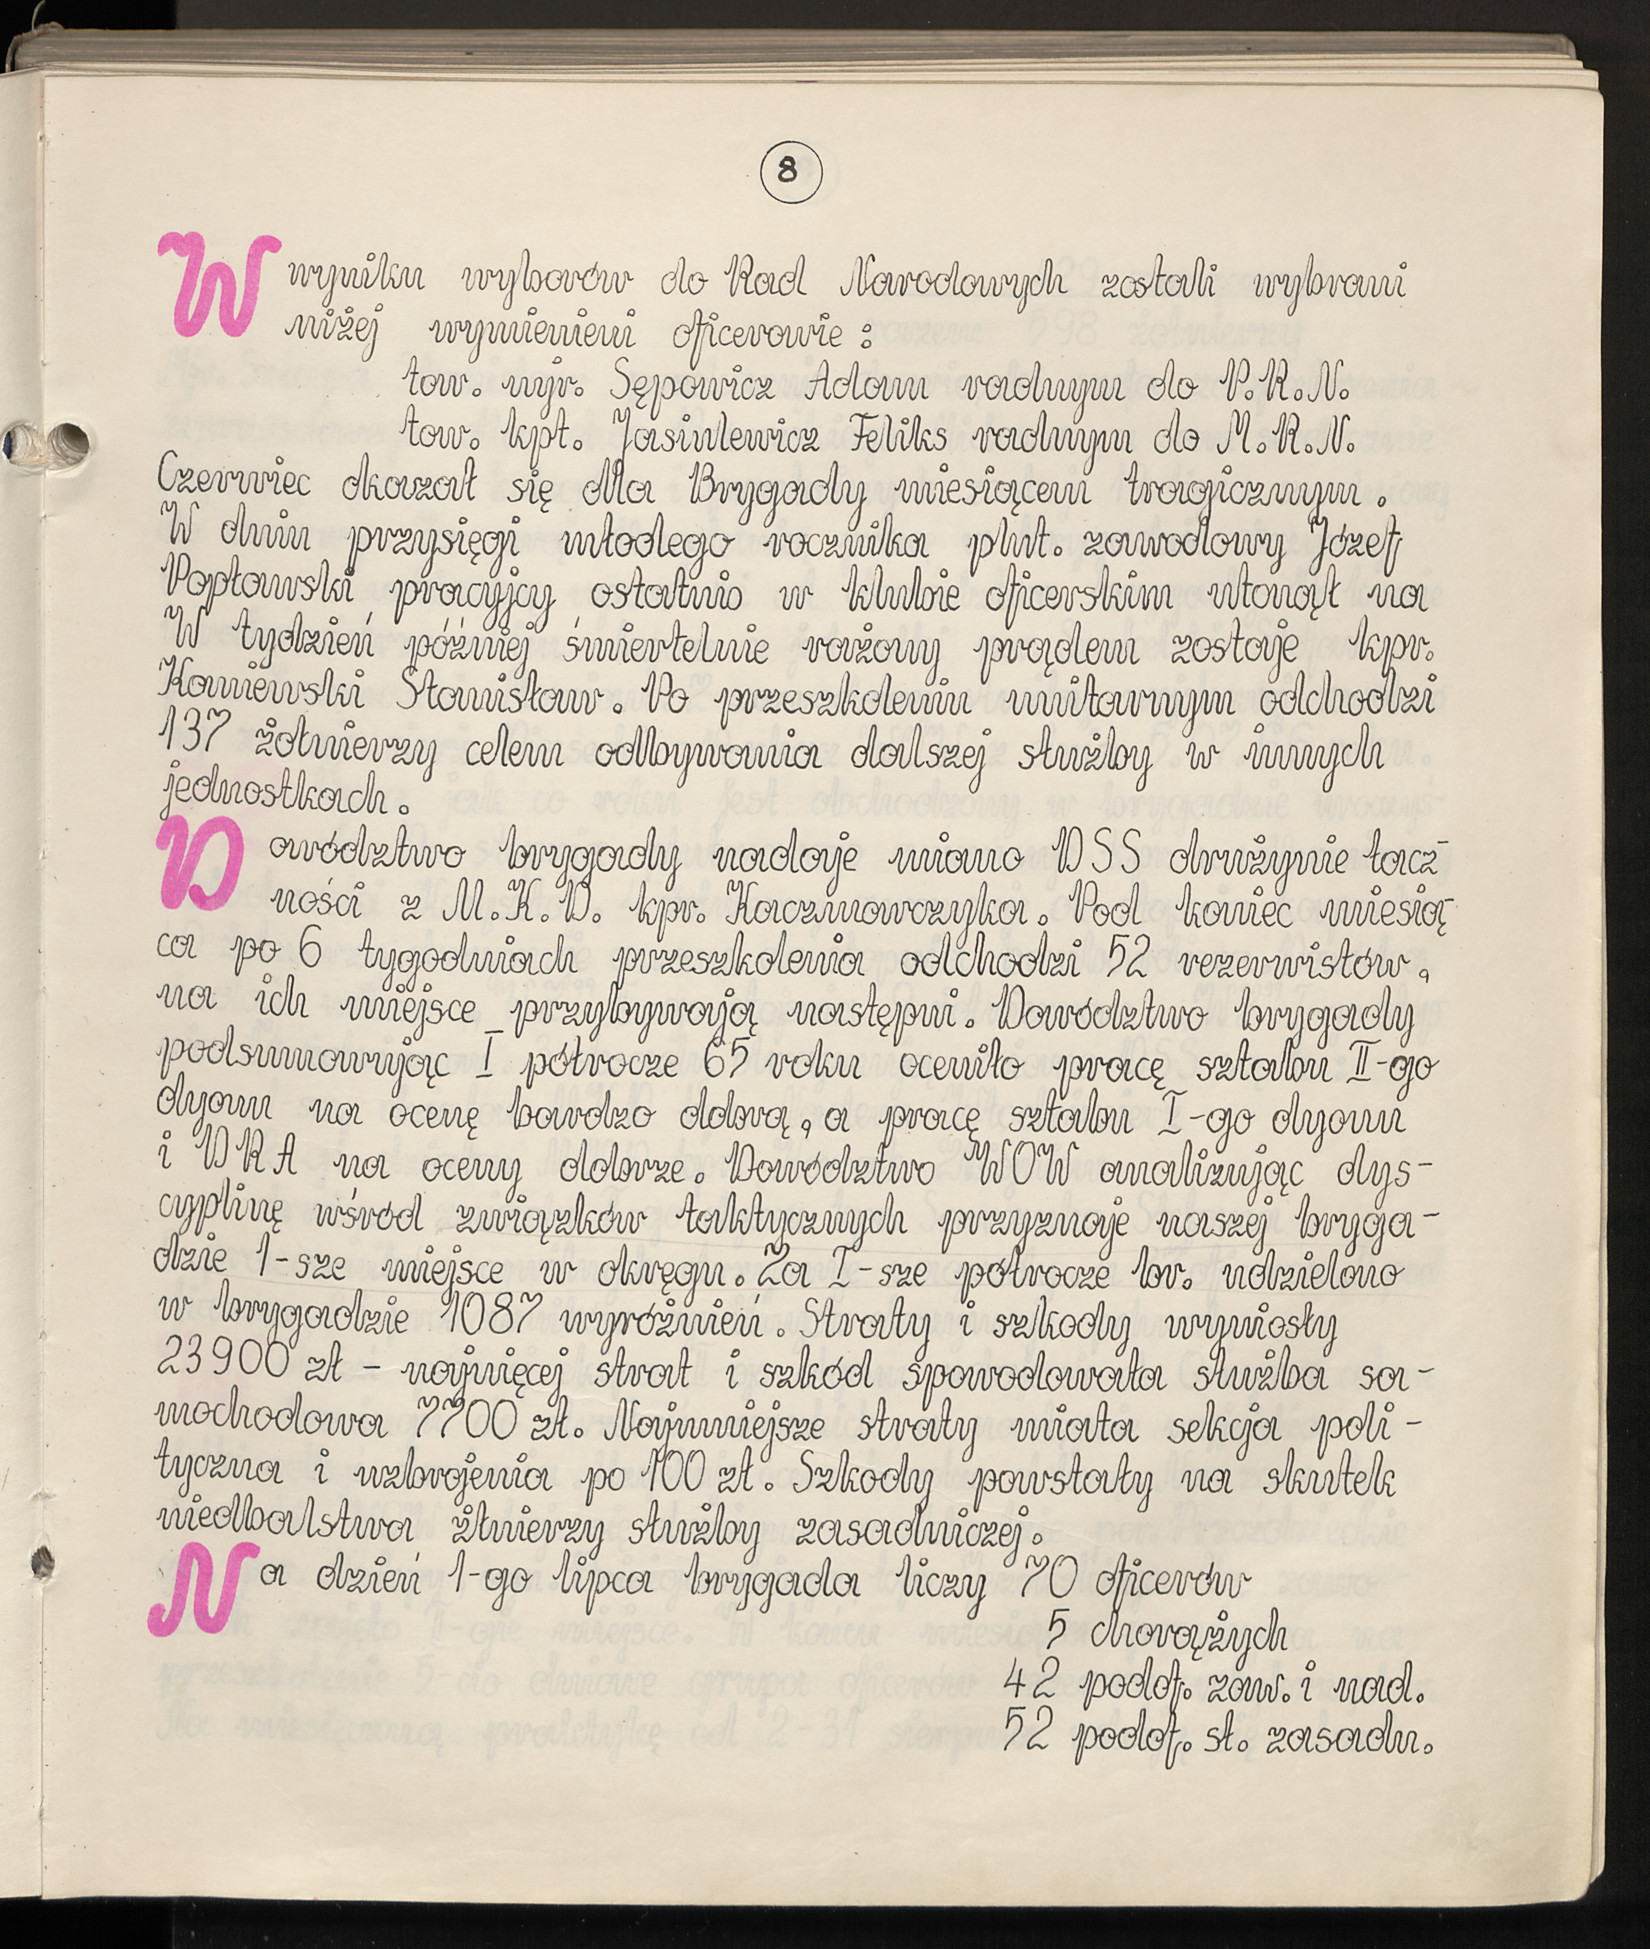 8
W wyniku wyborów do Rad Narodowych zostali wybrani
niżej wymienieni oficerowie :
tow. mjr. Sępowicz Adam radnym do P.R.N.
tow. kpt. Jasiulewicz Feliks radnym do M.R.N.
Czerwiec okazał się dla Brygady miesiącem tragicznym.
W dniu przysięgi młodego rocznika plut. zawodowy Józef
Popławski pracyjcy ostatnio w klubie oficerskim utonął na
W tydzień później śmiertelnie rażony prądem zostaje kpr.
Kaniewski Stanisław. Po przeszkoleniu unitarnym odchodzi
137 żołnierzy celem odbywania dalszej służby w innych
jednostkach.
Dowództwo brygady nadaje miano DSS drużynie łącz-
ności z M.K.D. kpr. Kaczmarczyka. Pod koniec miesią-
ca po 6 tygodniach przeszkolenia odchodzi 52 rezerwistów,
na ich miejsce przybywają następni. Dowództwo brygady
podsumowując I półrocze 65 roku oceniło pracę sztabu II-go
dyonu na ocenę bardzo dobrą, a pracę sztabu I-go dyonu
i DRA na oceny dobrze. Dowództwo WOW analizując dys-
cyplinę wśród związków taktycznych przyznaje naszej bryga-
dzie 1-sze miejsce w okręgu. Za I-sze półrocze br. udzielono
w brygadzie 1087 wyróżnień. Straty i szkody wyniosły
23900 zł - najwięcej strat i szkód spowodowała służba sa-
mochodowa 7700 zł. Najmniejsze straty miała sekcja poli-
tyczna i uzbrojenia po 100 zł. Szkody powstały na skutek
niedbalstwa żłnierzy służby zasadniczej.
Na dzień 1-go lipca brygada liczy 70 oficerów
5 chorążych
42 podof. zaw. i nad.
52 podof. sł. zasadn.